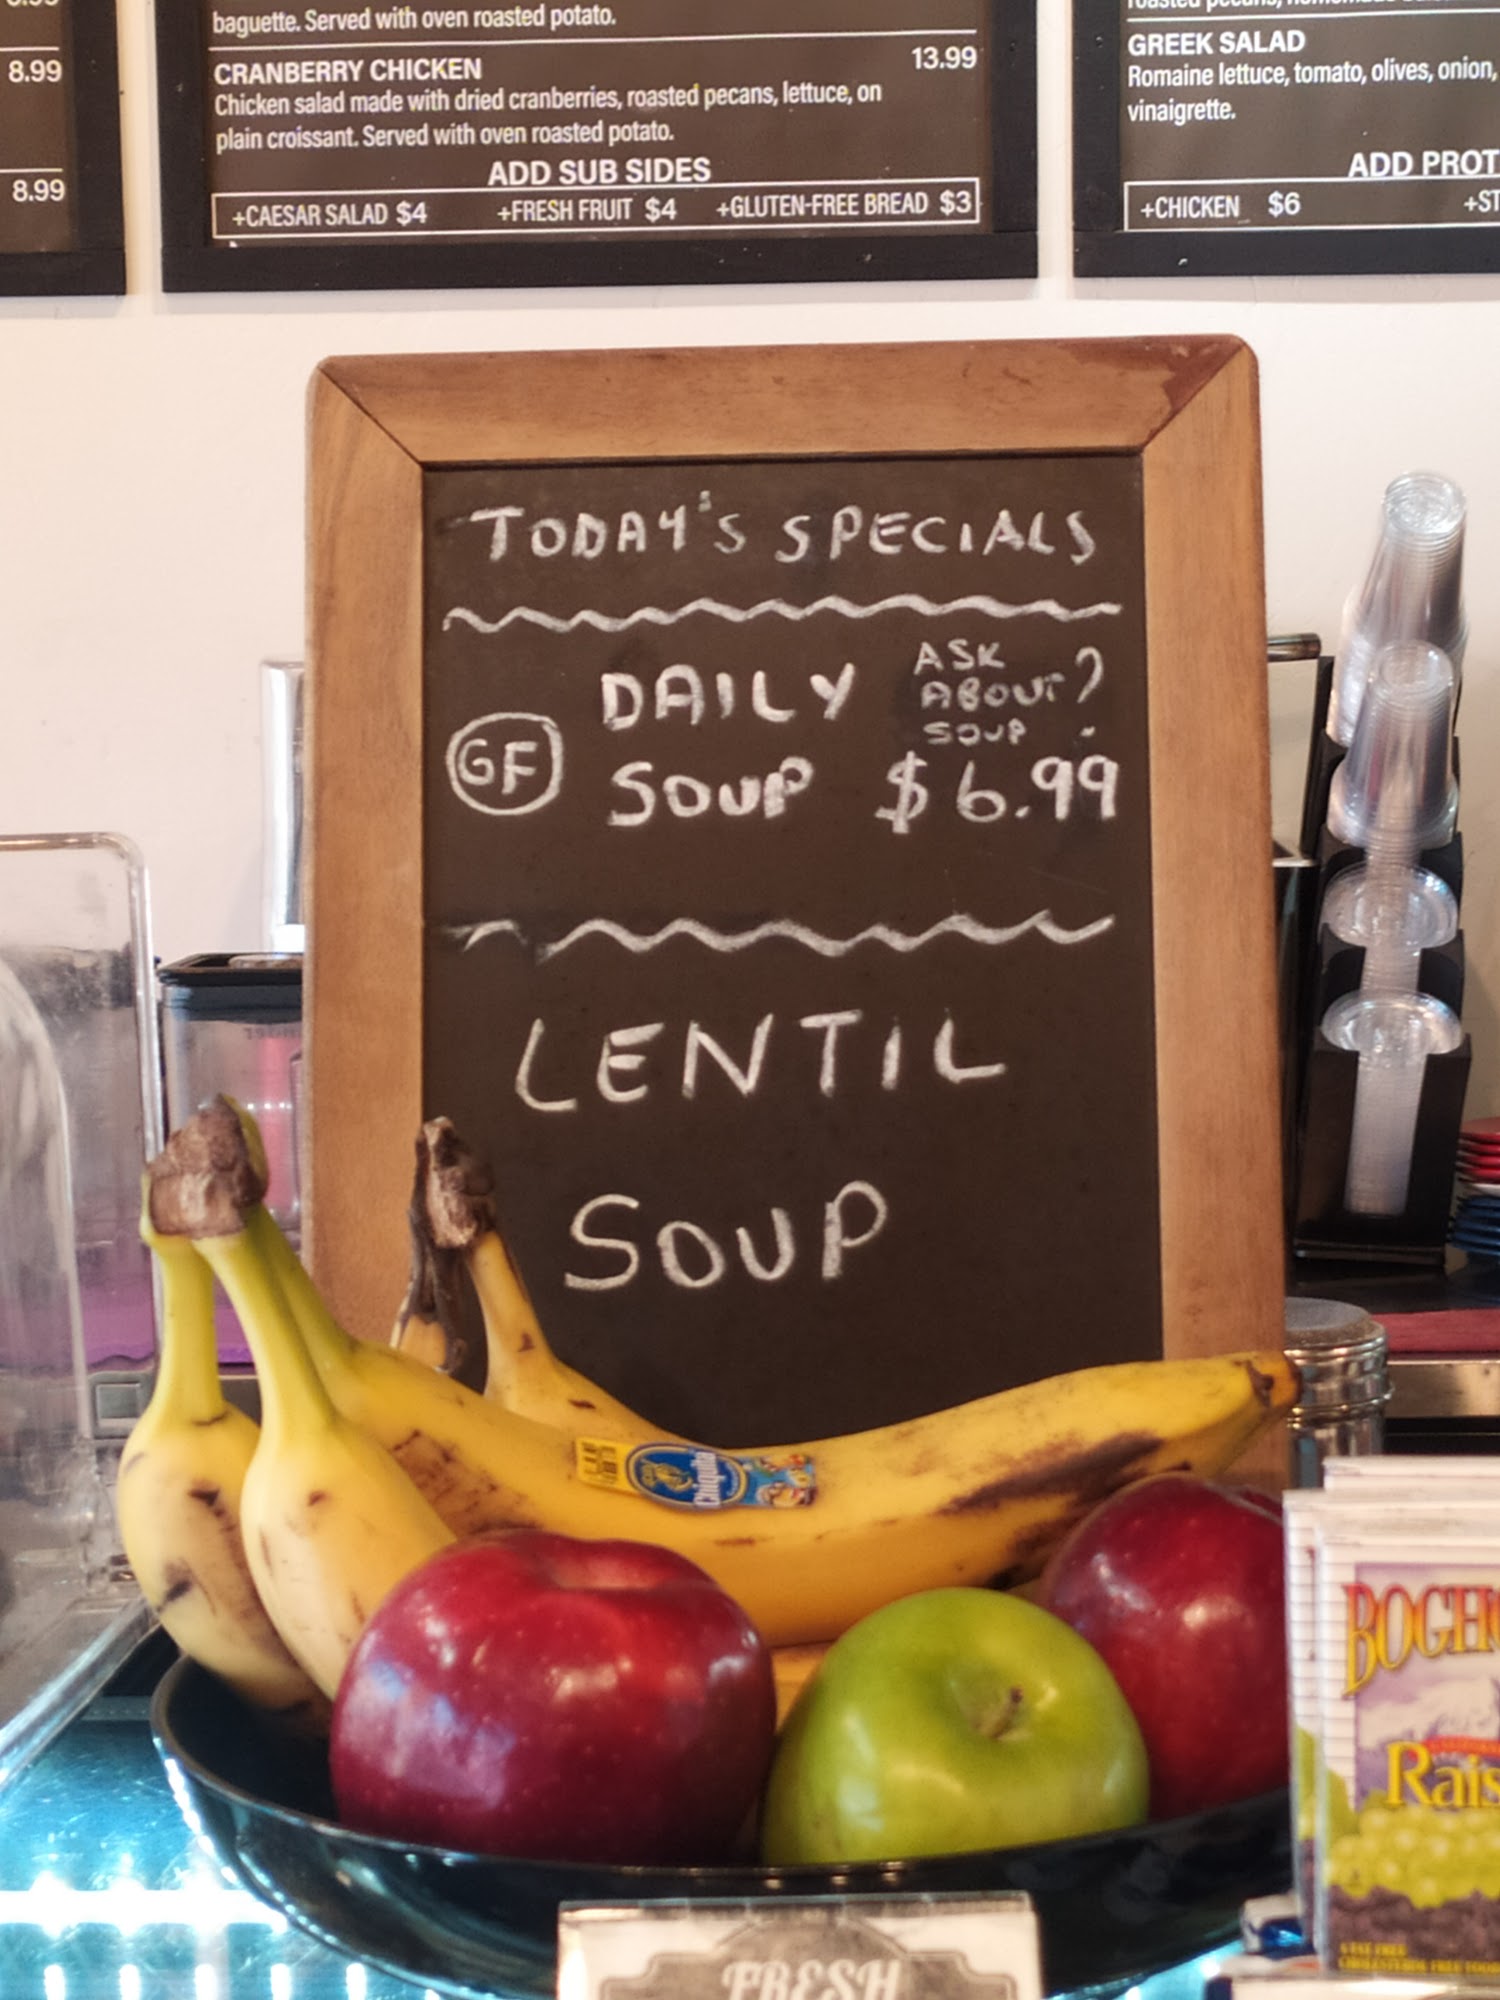 8.99
8.99
baguette. Served with oven roasted potato.
CRANBERRY CHICKEN 13.99
Chicken salad made with dried cranberries, roasted pecans, lettuce, on
plain croissant. Served with oven roasted potato.
ADD SUB SIDES
+CAESAR SALAD $4 +FRESH FRUIT $4 +GLUTEN-FREE BREAD $3
roasted pecans,
GREEK SALAD
Romaine lettuce, tomato, olives, onion,
vinaigrette.
ADD PROT
+CHICKEN $6 +ST
TODAY'S SPECIALS
DAILY
SOUP $6.99
ASK
ABOUT?
SOUP
GF
LENTIL
SOUP
Chiquita
BOGHO
Rais
FRESH